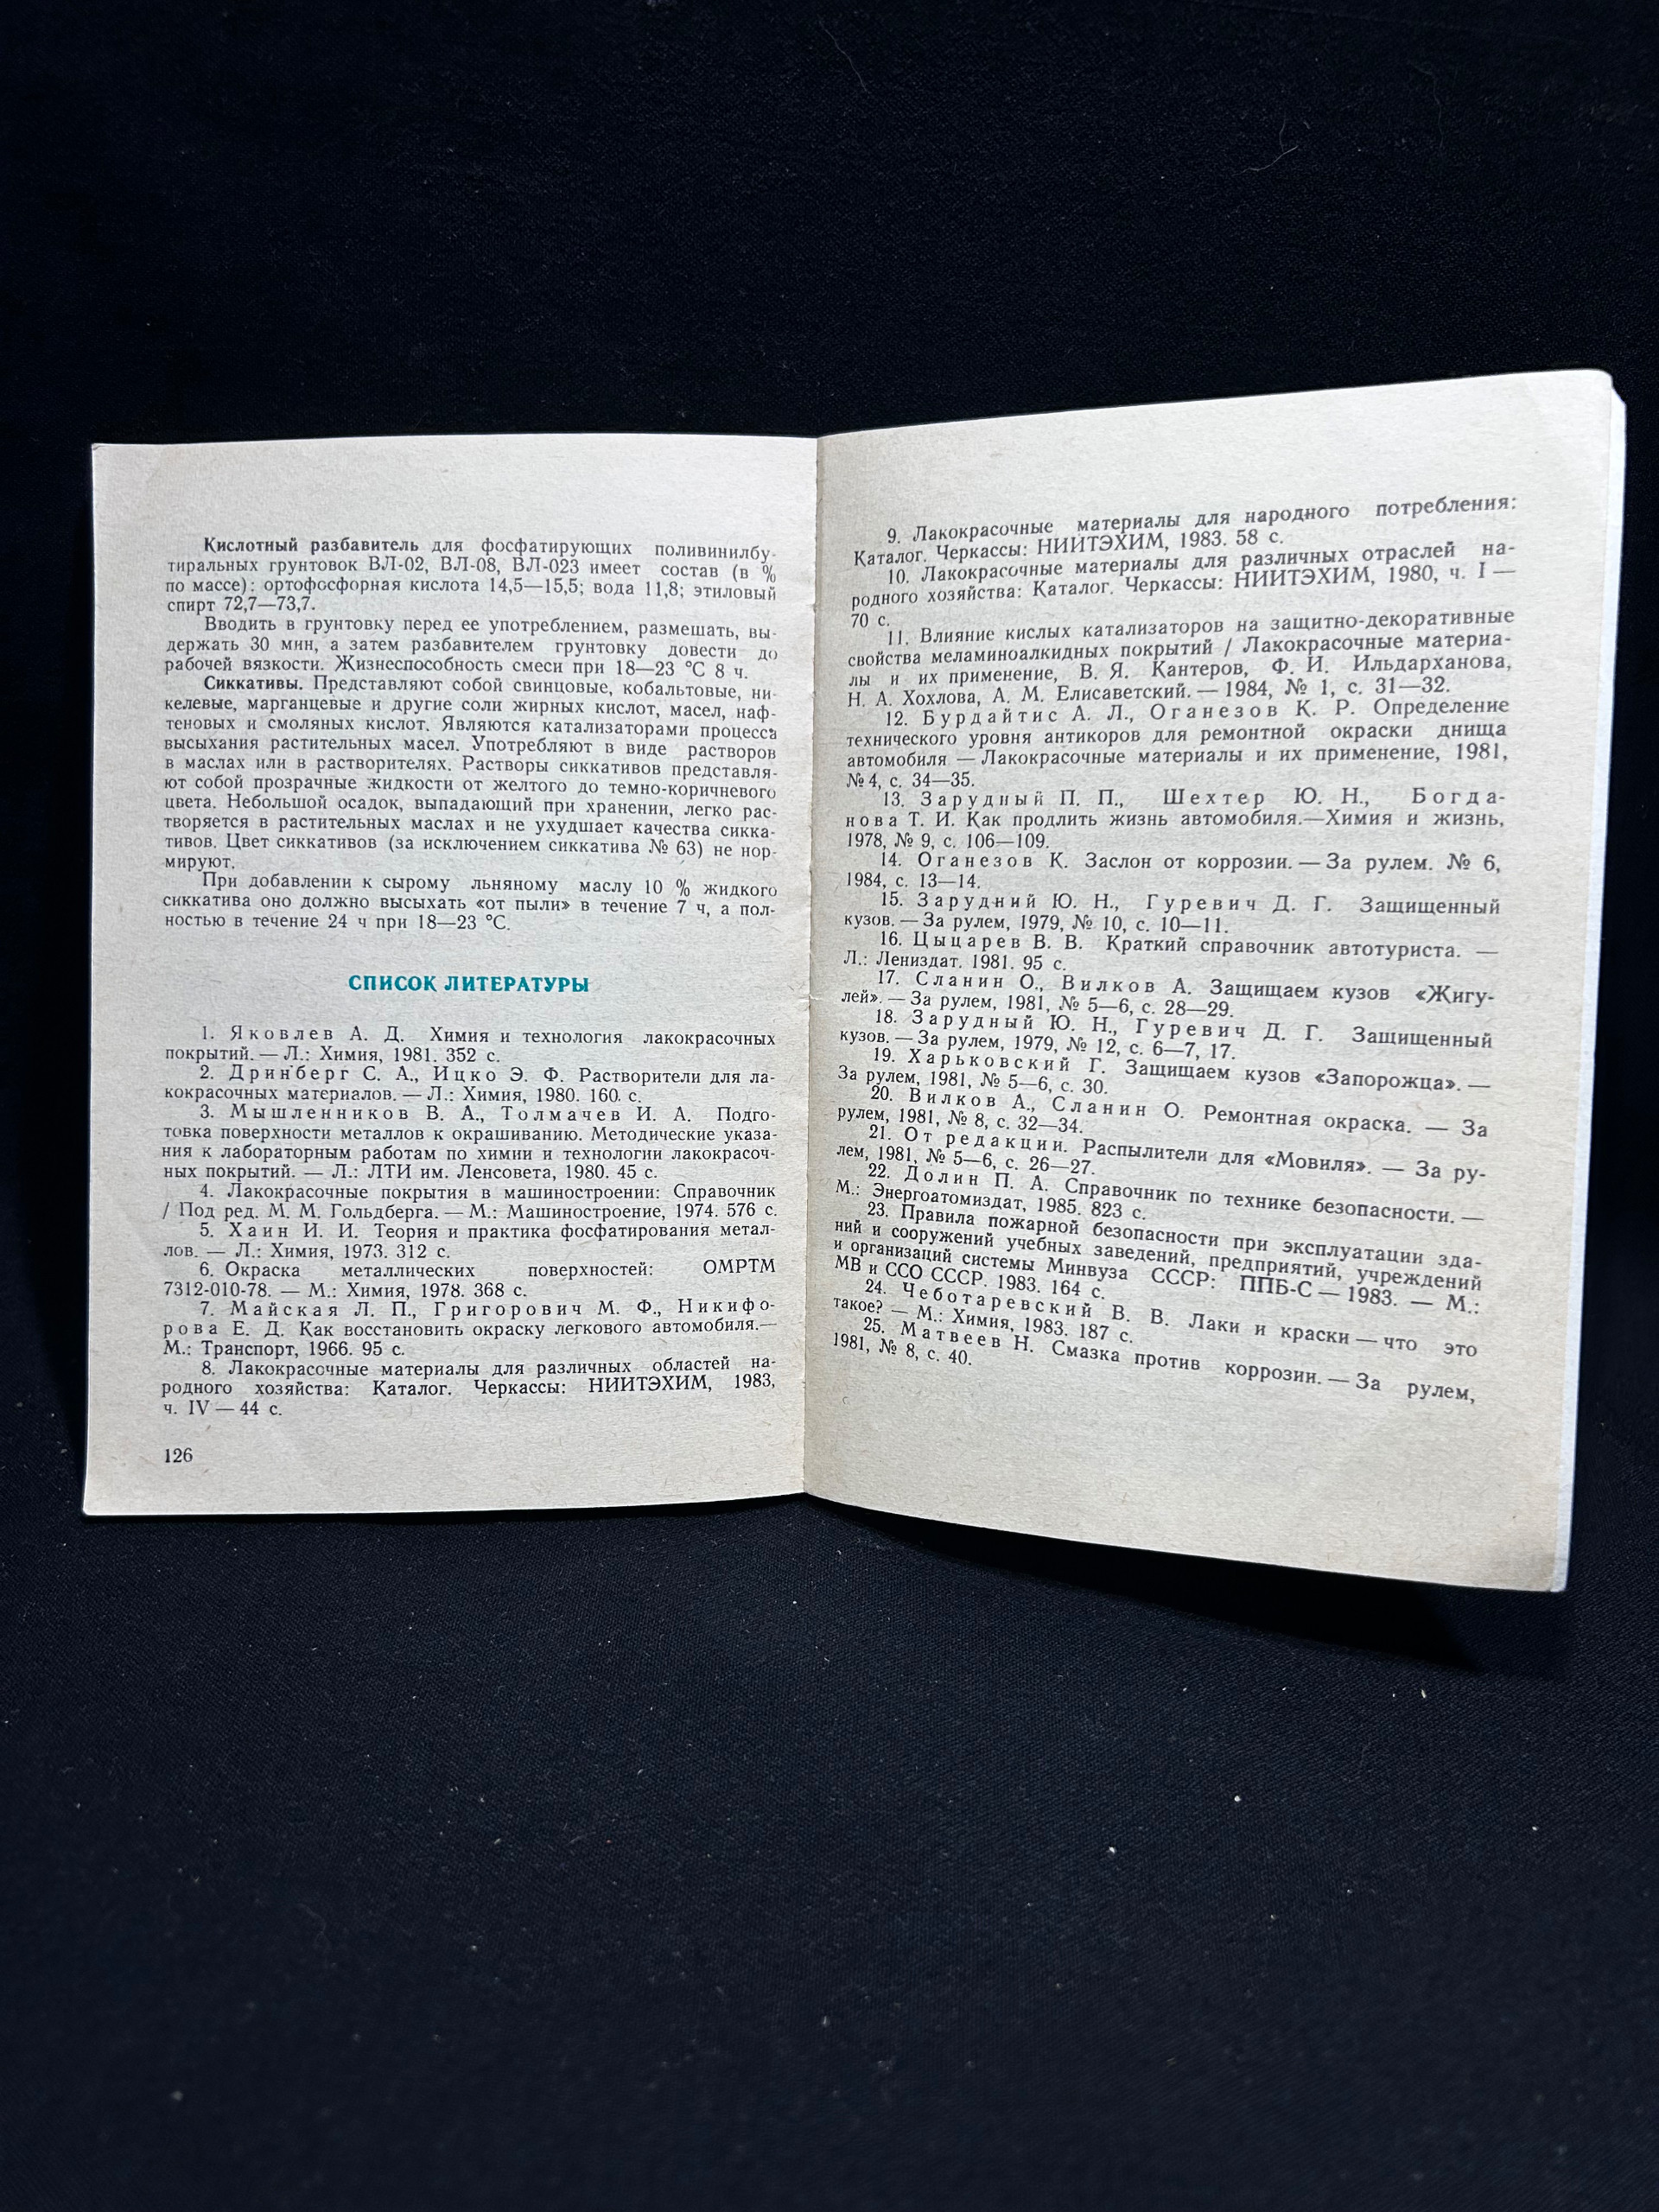 Кислотный разбавитель для фосфатирующих поливинилбу-
тиральных грунтовок ВЛ-02, ВЛ-08, ВЛ-023 имеет состав (в %
по массе): ортофосфорная кислота 14,5—15,5; вода 11,8; этиловый
спирт 72,7—73,7.
Вводить в грунтовку перед ее употреблением, размешать, вы-
держать 30 мин, а затем разбавителем грунтовку довести до
рабочей вязкости. Жизнеспособность смеси при 18—23 °С 8 ч.
Сиккативы. Представляют собой свинцовые, кобальтовые, ни-
келевые, марганцевые и другие соли жирных кислот, масел, наф-
теновых и смоляных кислот. Являются катализаторами процесса
высыхания растительных масел. Употребляют в виде растворов
в маслах или в растворителях. Растворы сиккативов представля-
ют собой прозрачные жидкости от желтого до темно-коричневого
цвета. Небольшой осадок, выпадающий при хранении, легко рас-
творяется в растительных маслах и не ухудшает качества сикка-
тивов. Цвет сиккативов (за исключением сиккатива № 63) не нор-
мируют.
При добавлении к сырому льняному маслу 10 % жидкого
сиккатива оно должно высыхать «от пыли» в течение 7 ч, а пол-
ностью в течение 24 ч при 18—23 °С.
СПИСОК ЛИТЕРАТУРЫ
1. Яковлев А. Д. Химия и технология лакокрасочных
покрытий. — Л.: Химия, 1981. 352 с.
2. Дринберг С. А., Ицко Э. Ф. Растворители для ла-
кокрасочных материалов. — Л.: Химия, 1980. 160. с.
3. Мышленников В. А., Толмачев И. А. Подго-
товка поверхности металлов к окрашиванию. Методические указа-
ния к лабораторным работам по химии и технологии лакокрасоч-
ных покрытий. — Л.: ЛТИ им. Ленсовета, 1980. 45 с.
4. Лакокрасочные покрытия в машиностроении: Справочник
/ Под ред. М. М. Гольдберга. — М.: Машиностроение, 1974. 576 с.
5. Хаин И. И. Теория и практика фосфатирования метал-
лов. — Л.: Химия, 1973. 312 с.
6. Окраска металлических поверхностей: ОМРТМ
7312-010-78. — М.: Химия, 1978. 368 с.
7. Майская Л. П., Григорович М. Ф., Никифо-
рова Е. Д. Как восстановить окраску легкового автомобиля.—
М.: Транспорт, 1966. 95 с.
8. Лакокрасочные материалы для различных областей на-
родного хозяйства: Каталог. Черкассы: НИИТЭХИМ, 1983,
ч. IV — 44 с.
126
9. Лакокрасочные материалы для народного потребления:
Каталог. Черкассы: НИИТЭХИМ, 1983. 58 с.
10. Лакокрасочные материалы для различных отраслей на-
родного хозяйства: Каталог. Черкассы: НИИТЭХИМ, 1980, ч. I —
70 с.
11. Влияние кислых катализаторов на защитно-декоративные
свойства меламиноалкидных покрытий / Лакокрасочные материа-
лы и их применение, В. Я. Кантеров, Ф. И. Ильдарханова,
Н. А. Хохлова, А. М. Елисаветский. — 1984, № 1, с. 31—32.
12. Бурдайтис А. Л., Оганезов К. Р. Определение
технического уровня антикоров для ремонтной окраски днища
автомобиля — Лакокрасочные материалы и их применение, 1981,
№ 4, с. 34—35.
13. Зарудный П. П., Шехтер Ю. Н., Богда-
нова Т. И. Как продлить жизнь автомобиля.—Химия и жизнь,
1978, № 9, с. 106—109.
14. Оганезов К. Заслон от коррозии. — За рулем. № 6,
1984, с. 13—14.
15. Зарудний Ю. Н., Гуревич Д. Г. Защищенный
кузов. — За рулем, 1979, № 10, с. 10—11.
16. Цыцарев В. В. Краткий справочник автотуриста. —
Л.: Лениздат. 1981. 95 с.
17. Сланин О., Вилков А. Защищаем кузов «Жигу-
лей». — За рулем, 1981, № 5—6, с. 28—29.
18. Зарудный Ю. Н., Гуревич Д. Г. Защищенный
кузов. — За рулем, 1979, № 12, с. 6—7, 17.
19. Харьковский Г. Защищаем кузов «Запорожца». —
За рулем, 1981, № 5—6, с. 30.
20. Вилков А., Сланин О. Ремонтная окраска. — За
рулем, 1981, № 8, с. 32—34.
21. От редакции. Распылители для «Мовиля». — За ру-
лем, 1981, № 5—6, с. 26—27.
22. Долин П. А. Справочник по технике безопасности. —
М.: Энергоатомиздат, 1985. 823 с.
23. Правила пожарной безопасности при эксплуатации зда-
ний и сооружений учебных заведений, предприятий, учреждений
и организаций системы Минвуза СССР: ППБ-С — 1983. — М.:
МВ и ССО СССР. 1983. 164 с.
24. Чеботаревский В. В. Лаки и краски — что это
такое? — М.: Химия, 1983. 187 с.
25. Матвеев Н. Смазка против коррозии. — За рулем,
1981, № 8, с. 40.